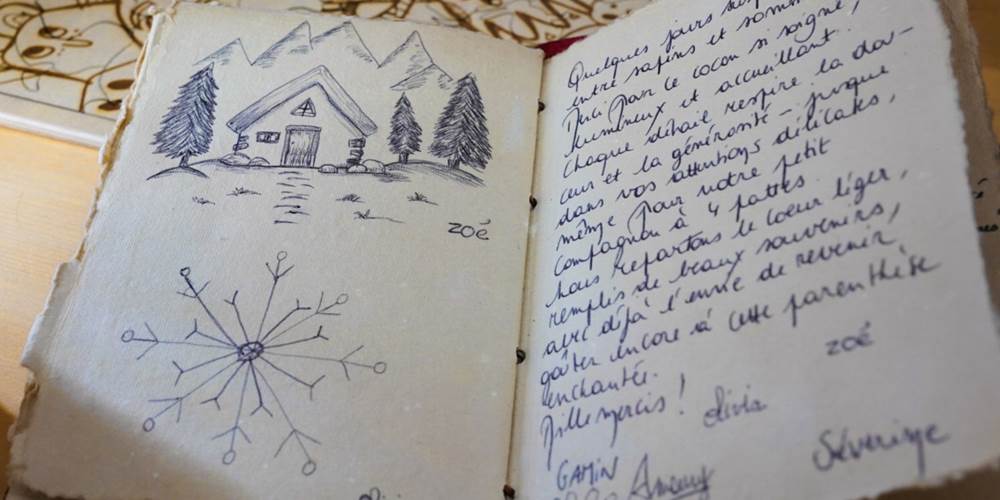 zoé
Quelques jours
entre sapins et
Merci pour ce cocon si soigné,
lumineux et accueillant.
Chaque détail respire la dou-
ceur et la générosité - jusque
dans vos attentions délicates,
même pour notre petit
compagnon à 4 pattes.
Nous repartons le coeur léger,
remplis de beaux souvenirs,
avec déjà l'envie de revenir
goûter encore à cette parenthèse
enchantée.
Mille mercis !
zoé
Olivia
Séverine
GAMIN